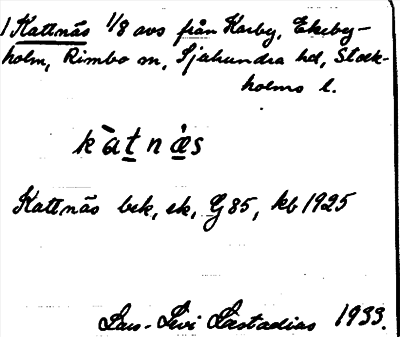 1 Kattnäs 1/8 avs från Karby, Ekeby-
holm, Rimbo sn, Sjuhundra hd, Stock-
holms l.
kàtnæ̀s
Kattnäs bek, ek, G 85, kb 1925
Lars-Levi Læstadius 1933.